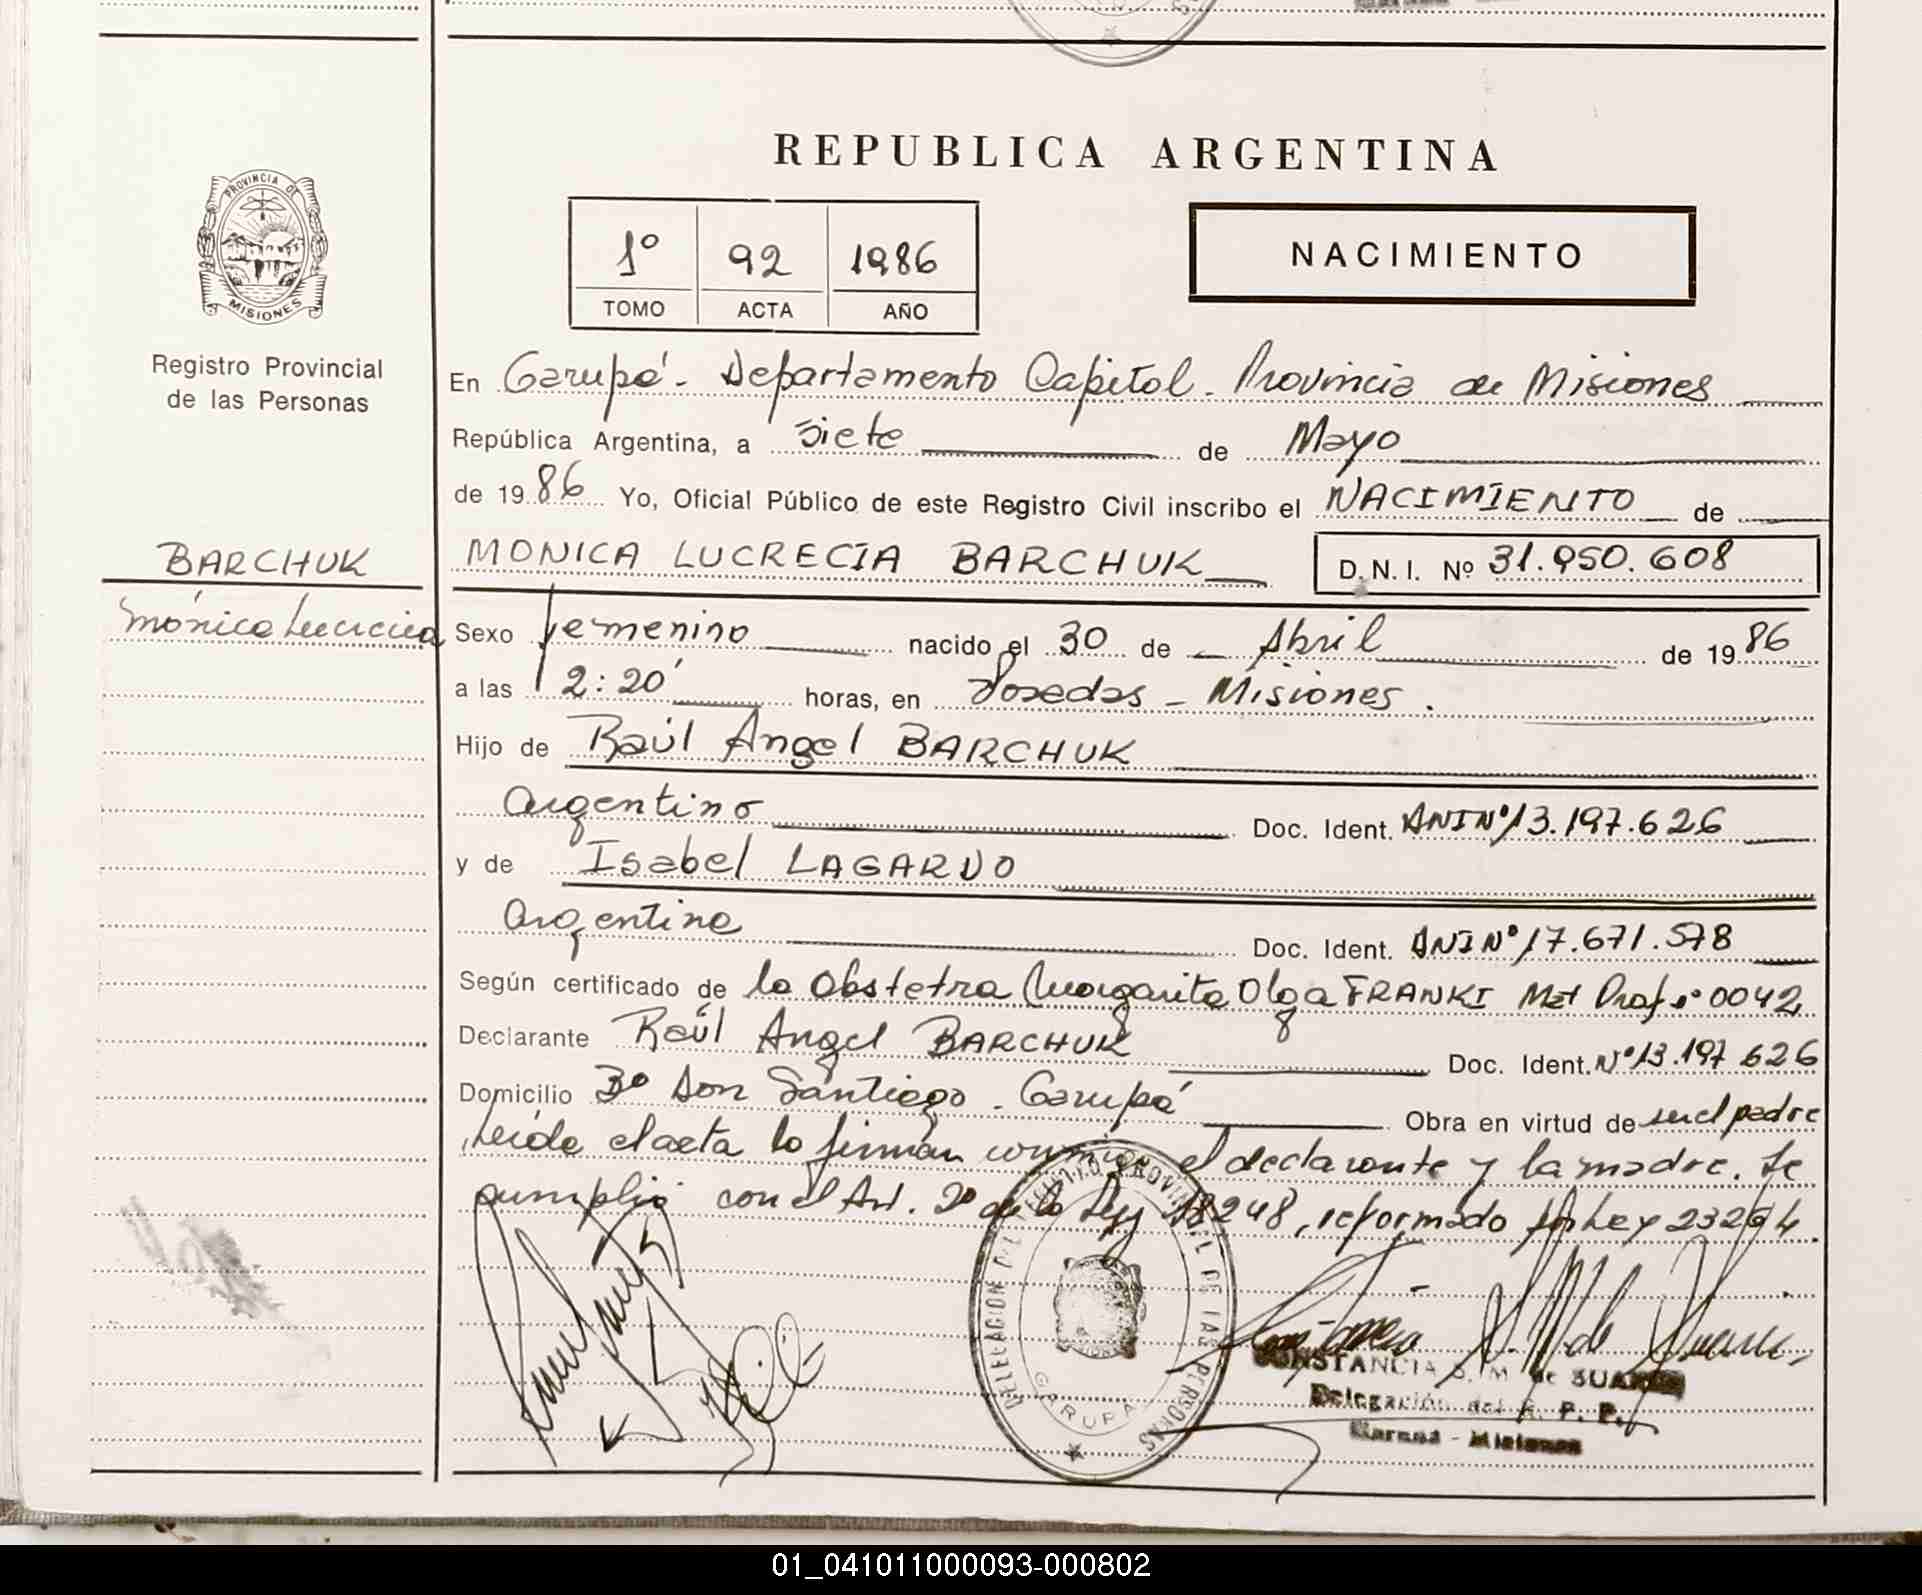 REPUBLICA ARGENTINA
PROVINCIA DE
MISIONES
Registro Provincial
de las Personas
1º 92 1986
TOMO ACTA AÑO
NACIMIENTO
En Garupá - Departamento Capital - Provincia de Misiones
República Argentina, a siete de Mayo
de 19 86 Yo, Oficial Público de este Registro Civil inscribo el NACIMIENTO de
BARCHUK
MONICA LUCRECIA BARCHUK D.N.I. Nº 31.950.608
Mónica Lucrecia
Sexo femenino nacido el 30 de Abril de 19 86
a las 12:20' horas, en Posadas - Misiones.
Hijo de Raúl Angel BARCHUK
argentino Doc. Ident. DNI Nº 13.197.626
y de Isabel LAGARDO
argentina Doc. Ident. DNI Nº 17.671.578
Según certificado de la Obstetra Margarita Olga FRANKI Mat Prof nº 0042
Declarante Raúl Angel BARCHUK Doc. Ident. Nº 13.197.626
Domicilio Bº Don Santiago - Garupá Obra en virtud de ser el padre
Leída el acta lo firman conmigo el declarante y la madre. Se
cumplió con el Art. 2º de la Ley 18248, reformado por Ley 23264
DELEGACION DEL REGISTRO PROVINCIAL DE LAS PERSONAS
GARUPA
CONSTANCIA S. M. de SUAREZ
Delegación del R. P. P.
Garupá - Misiones
01_041011000093-000802